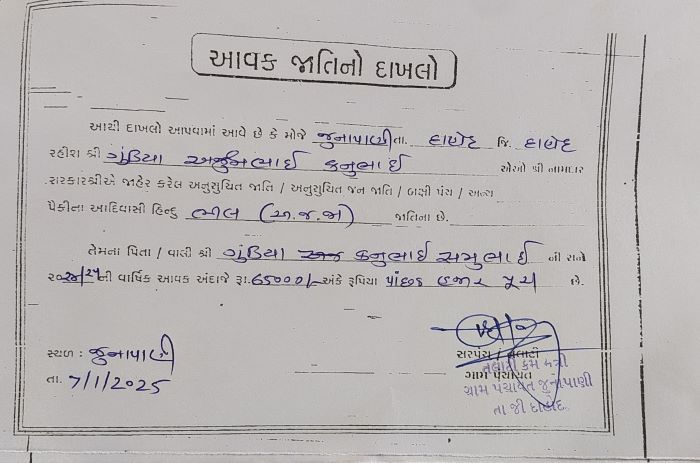 આવક જાતિનો દાખલો
આથી દાખલો આપવામાં આવે છે કે મોજે જુનાપાણી તા. દાહોદ જિ. દાહોદ
રહીશ શ્રી ગુંડિયા અર્જુનભાઈ કનુભાઈ એઓ શ્રી નામદાર
સરકારશ્રીએ જાહેર કરેલ અનુસુચિત જાતિ / અનુસુચિત જન જાતિ / બક્ષી પંચ / અન્ય
પૈકીના આદિવાસી હિન્દુ ભીલ (અ.જ.જા) જાતિના છે.
તેમના પિતા / વાલી શ્રી ગુંડિયા કનુભાઈ સમુભાઈ ની સને
૨૦૨૪/૨૫ની વાર્ષિક આવક અંદાજે રૂા. 65000/- અંકે રૂપિયા પાંસઠ હજાર પુરા છે.
સ્થળ : જુનાપાણી
તા. 7/1/2025
સરપંચ / તલાટી
ગ્રામ પંચાયત
તલાટી કમ મંત્રી
ગ્રામ પંચાયત જુનાપાણી
તા જી દાહોદ.